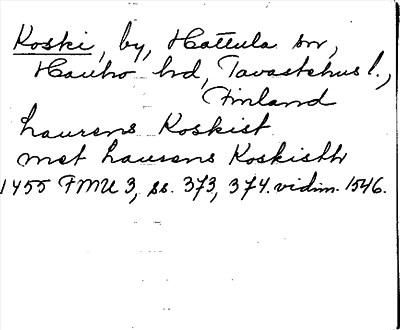 Koski, by, Hattula sn,
Hauho hd, Tavastehus l.,
Finland
laurens Koskist
met laurens Koskisth
1455 FMU 3, ss. 373, 374. vidim. 1546.